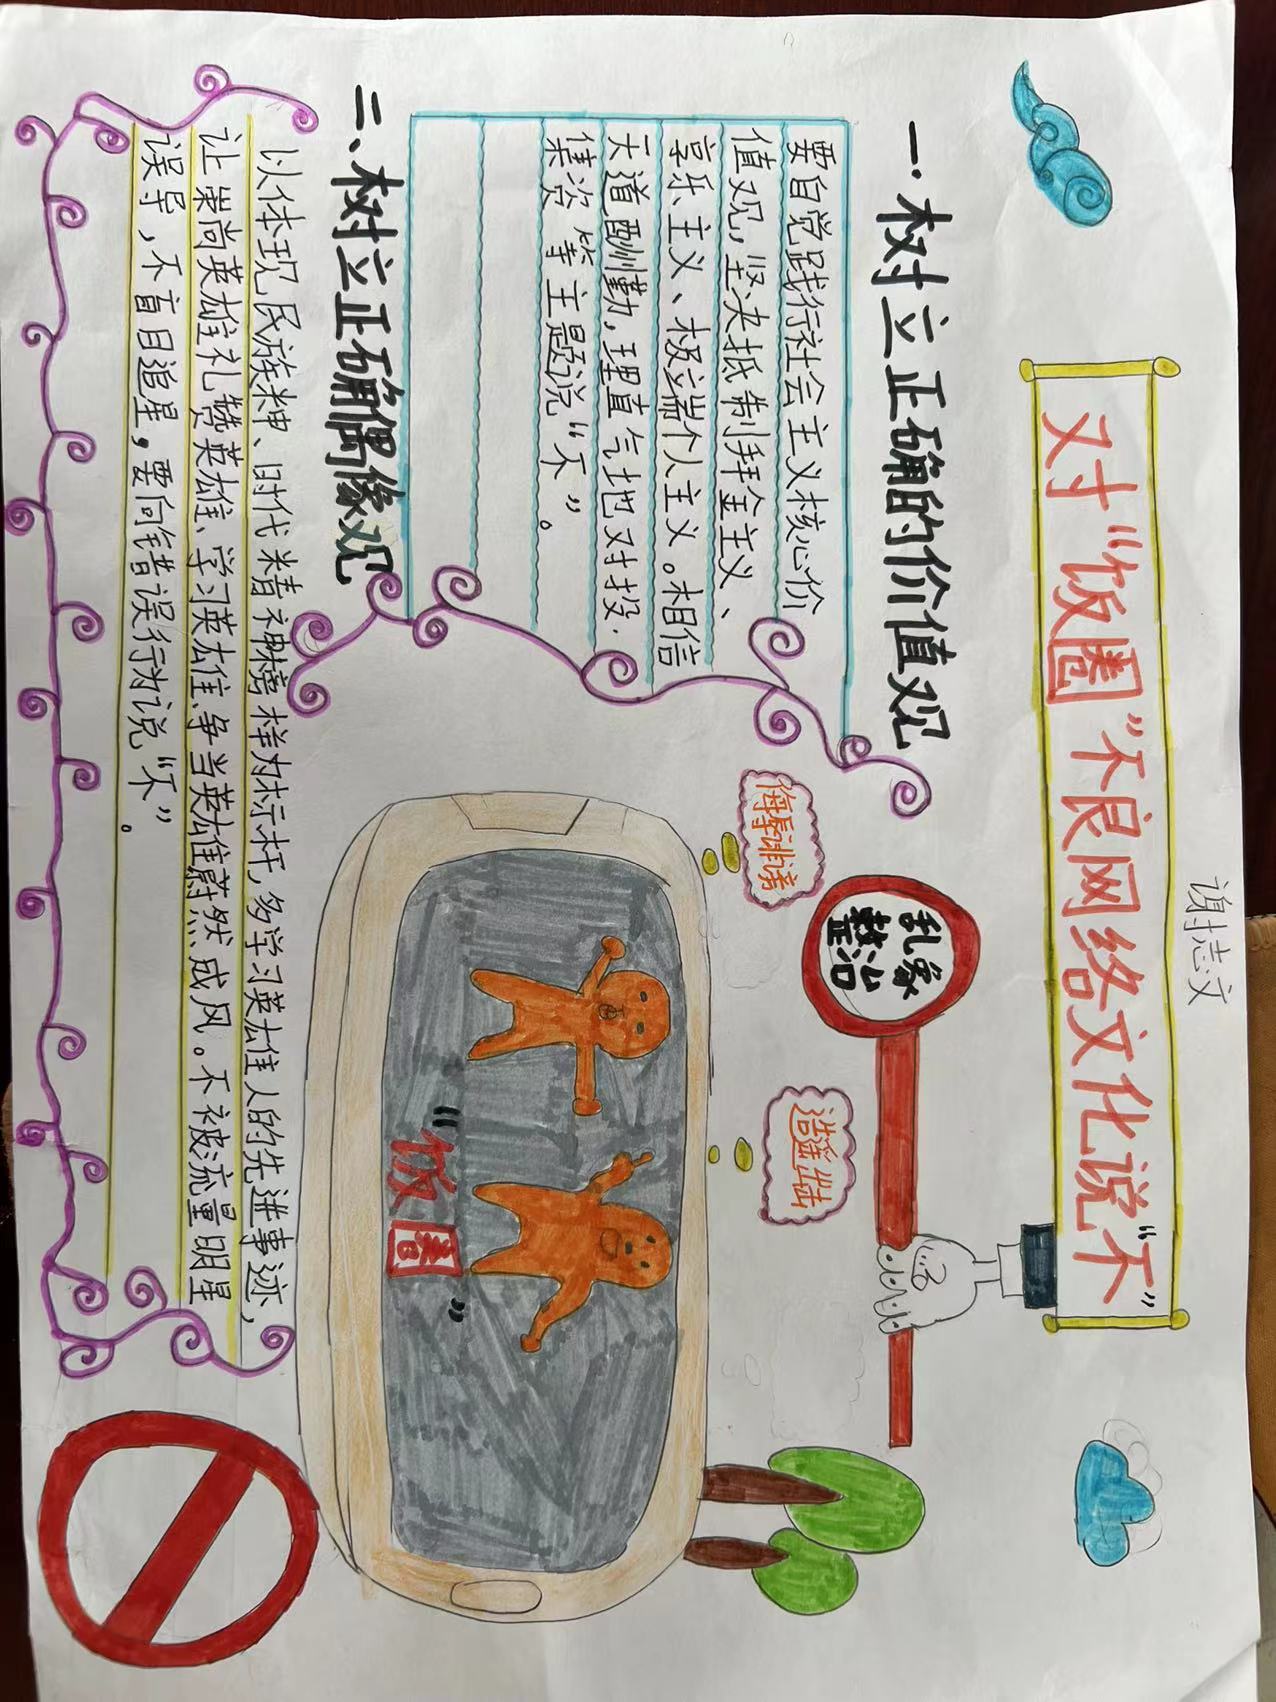 谢志文
对“饭圈”不良网络文化说“不”
一.树立正确的价值观
要自觉践行社会主义核心价
值观,坚决抵制拜金主义、
享乐主义、极端个人主义。相信
天道酬勤,理直气地对投.
集资等主题说“不”。
侮辱诽谤
乱象
整治
造谣出击
“饭圈”
二、树立正确偶像观
以体现民族精神、时代精神榜样为标杆,多学习英雄人的先进事迹,
让崇尚英雄礼赞英雄、学习英雄、争当英雄蔚然成风。不被流量明星
误导,不盲目追星,要向错误行为说“不”。